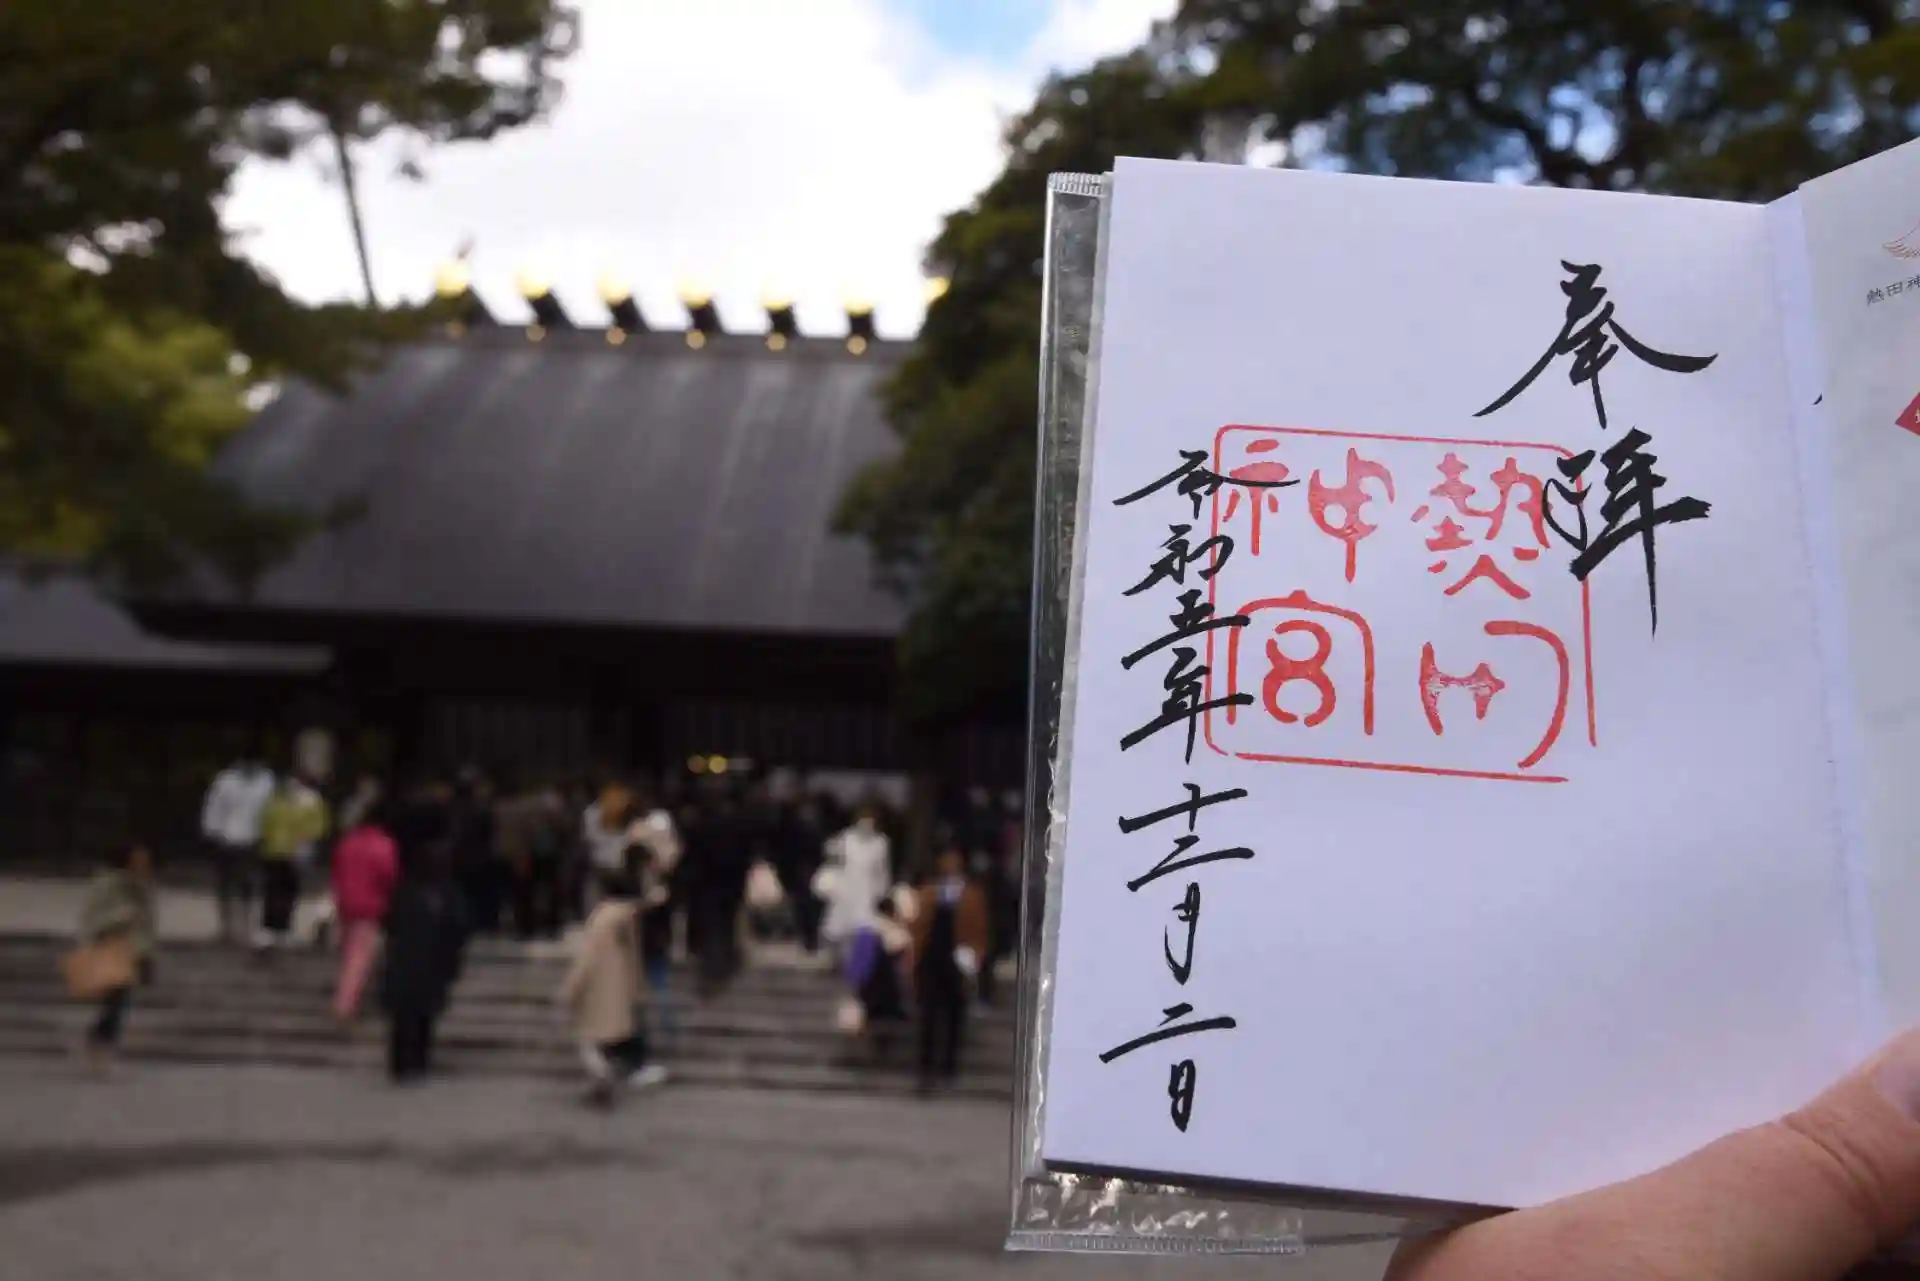 熱田神
奉拝
熱田
神宮
令和五年十二月二日